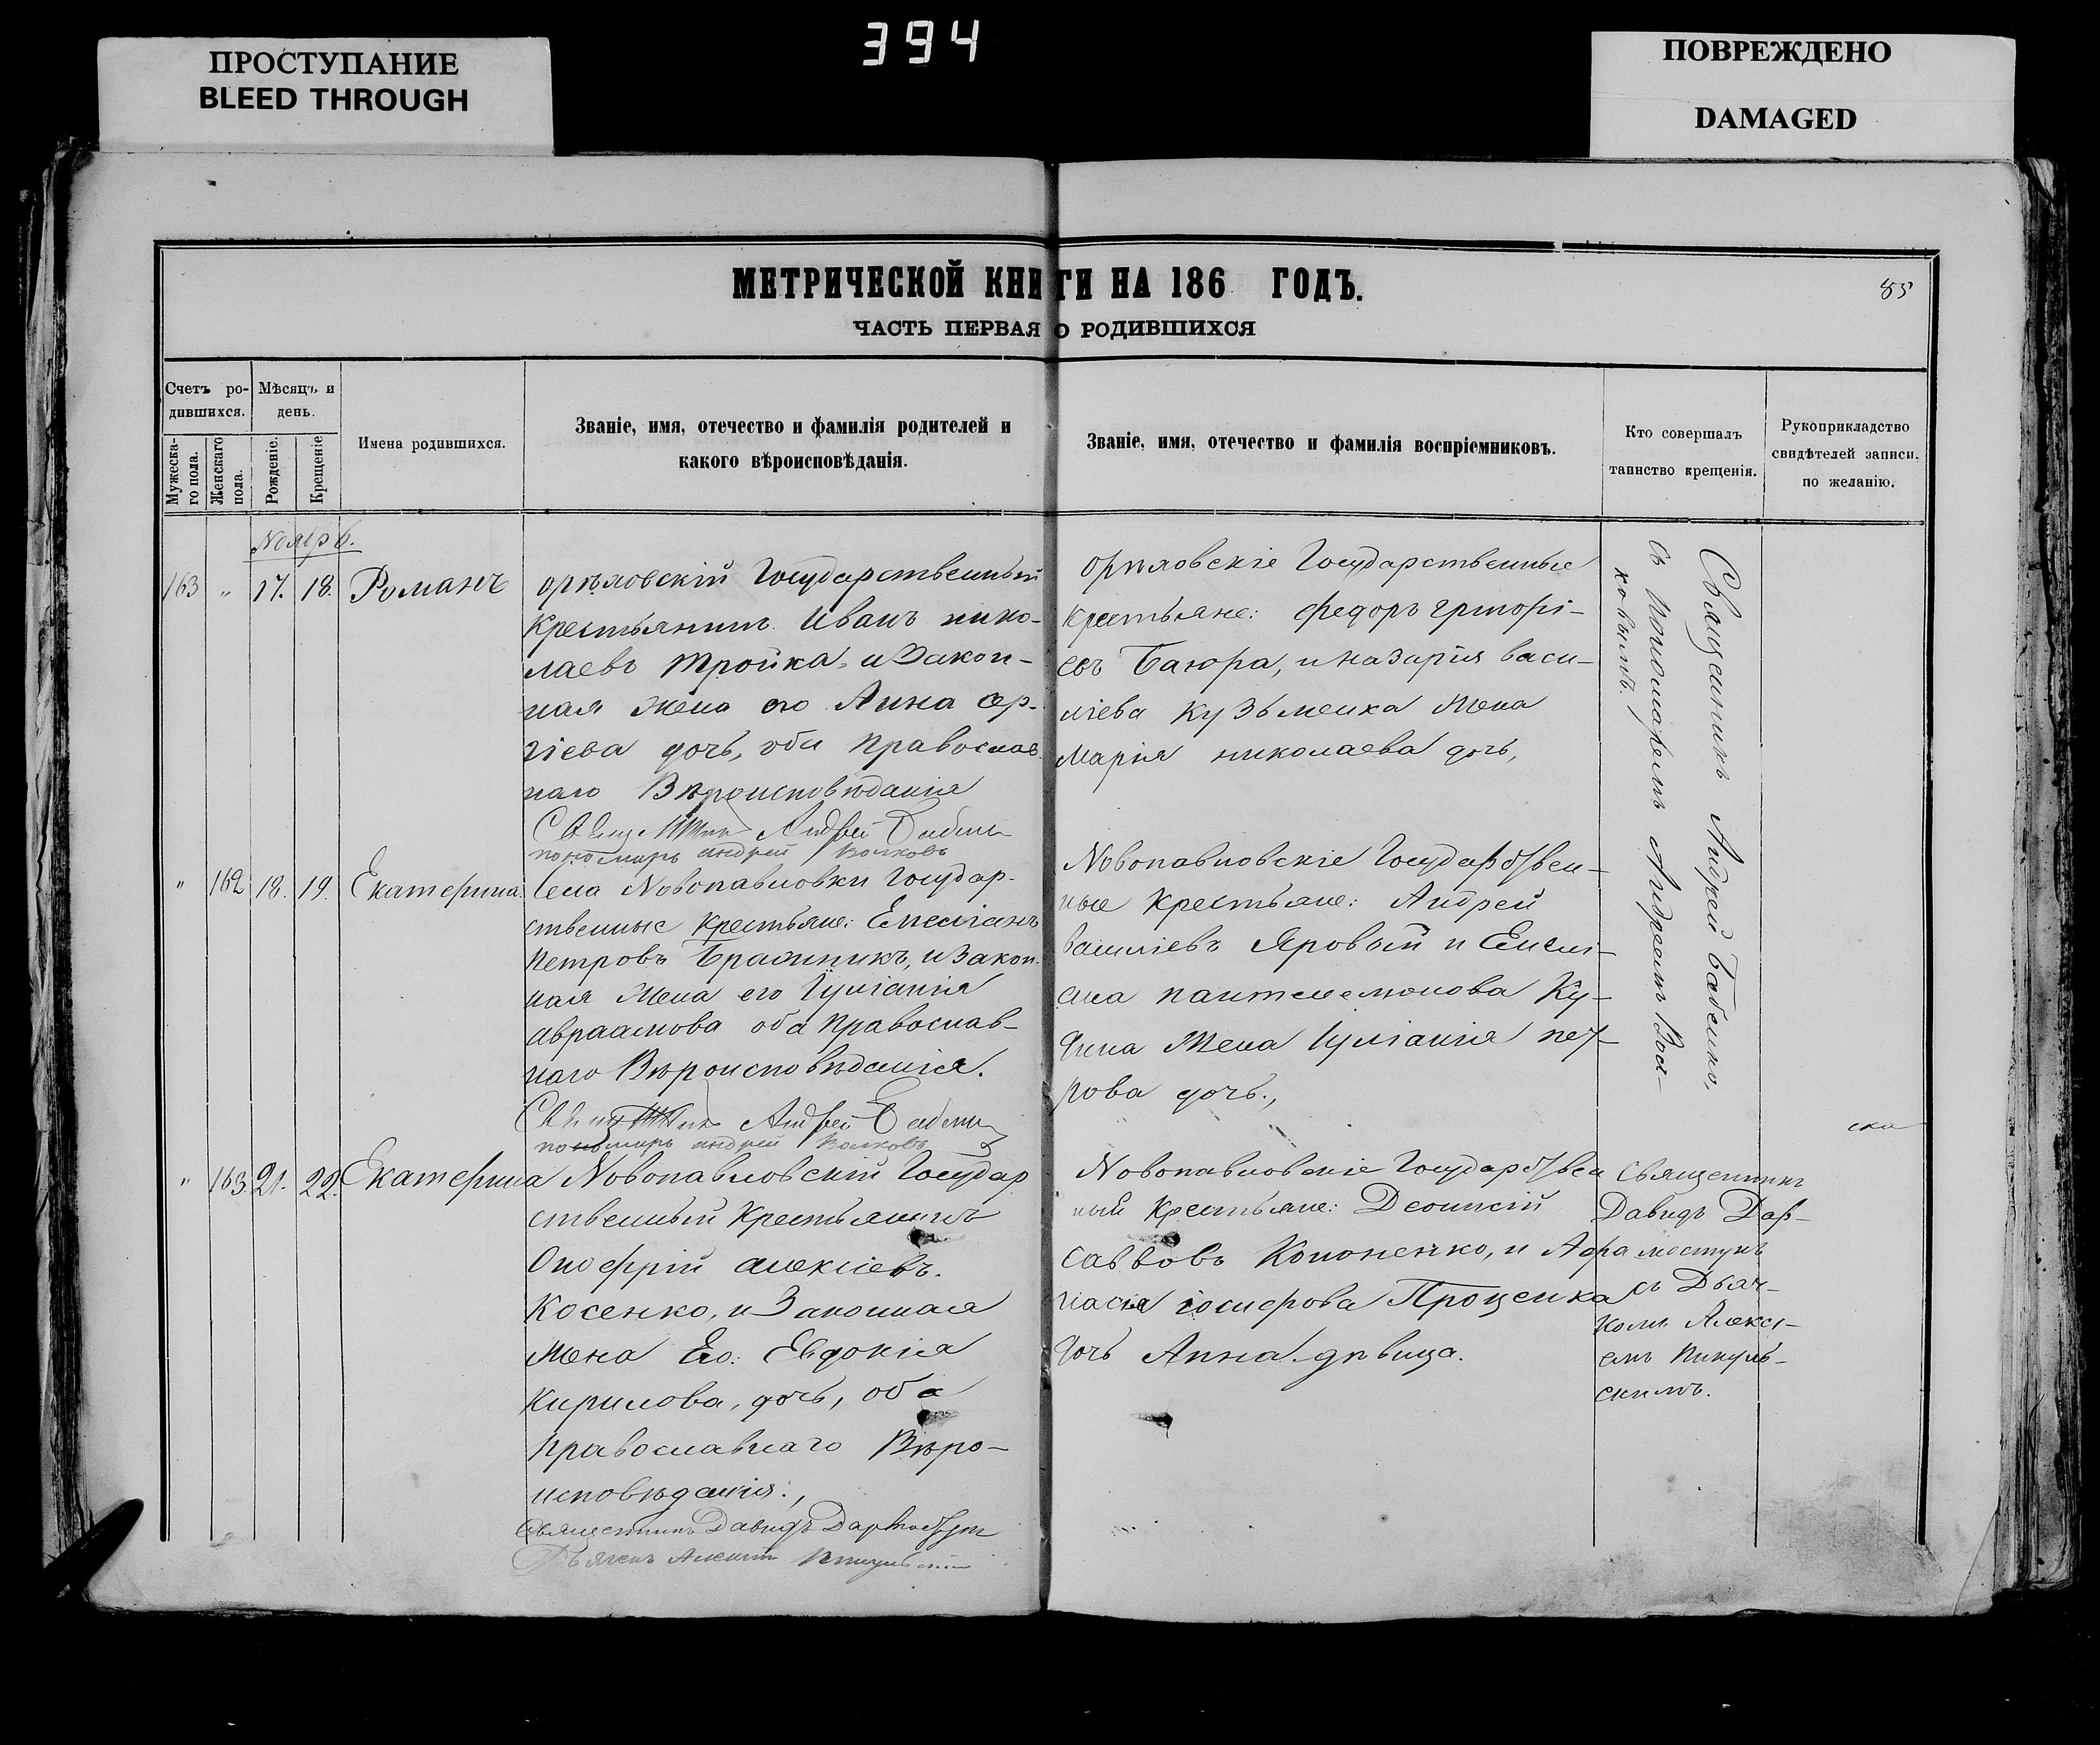 394
ПРОСТУПАНИЕ
BLEED THROUGH
ПОВРЕЖДЕНО
DAMAGED
МЕТРИЧЕСКОЙ КНИГИ НА 186 ГОДЪ.
85
ЧАСТЬ ПЕРВАЯ О РОДИВШИХСЯ
Счетъ ро-
дившихся.
Мужеска-
го пола.
Женскаго
пола.
Мѣсяцъ и
день.
Рожденіе.
Крещеніе
Имена родившихся.
Званіе, имя, отечество и фамилія родителей и
какого вѣроисповѣданія.
Званіе, имя, отечество и фамилія воспріемниковъ.
Кто совершалъ
таинство крещенія.
Рукоприкладство
свидѣтелей записи.
по желанію.
Ноябрь.
163 " 17. 18. Романъ
орѣловскій Государственный
Крестьянинъ Иванъ нико-
лаевъ Тройка, и Закон-
ная жена его Анна Сер-
гіева дочь, оба Православ
наго Вѣроисповѣданія
Священникъ Андрей Бабенко
пономарь андрей Волковъ
орѣловскіе Государственные
крестьяне: Федоръ григорі-
евъ Баюра, и назарія васи-
лієва Кузьменка жена
Марія николаева дочь,
Священникъ Андрей Бабенко,
съ Пономаремъ Андреемъ Вол-
ковымъ.
" 162 18. 19. Екатерина.
Села Новопавловки Государ-
ственные крестьяне: Емеліянъ
Петровъ Бражникъ, и Закон-
ная жена его Іуліанія
авраамова оба Православ-
наго Вѣроисповѣданія.
Священникъ Андрей Бабенко
пономарь андрей Волковъ
Новопавловскіе Государствен-
ные крестьяне: Андрей
Василіевъ Яровый и Емелі-
яна пантелемонова Ку-
жена Іуліанія пет-
рова дочь.,
" 163 21. 22. Екатерина
Новопавловскій Государ
ственный Крестьянинъ
Онофрій алексіевъ.
Косенко, и Законная
жена Его: Евдокія
Кирилова, дочь, оба
православнаго Вѣро-
исповѣданія.,
Священникъ Давидъ Дармостукъ
Дьячекъ Алексій Пикульскій
Новопавловскіе Государствен
ный Крестьяне: Деонисій
Саввовъ Кононенко, и Афа
насія іосифова Проценка
дочь Анна дѣвица.
Священникъ
Давидъ Дар-
мостукъ
съ Дьяч-
комъ Алексі-
емъ Пикуль-
скимъ.